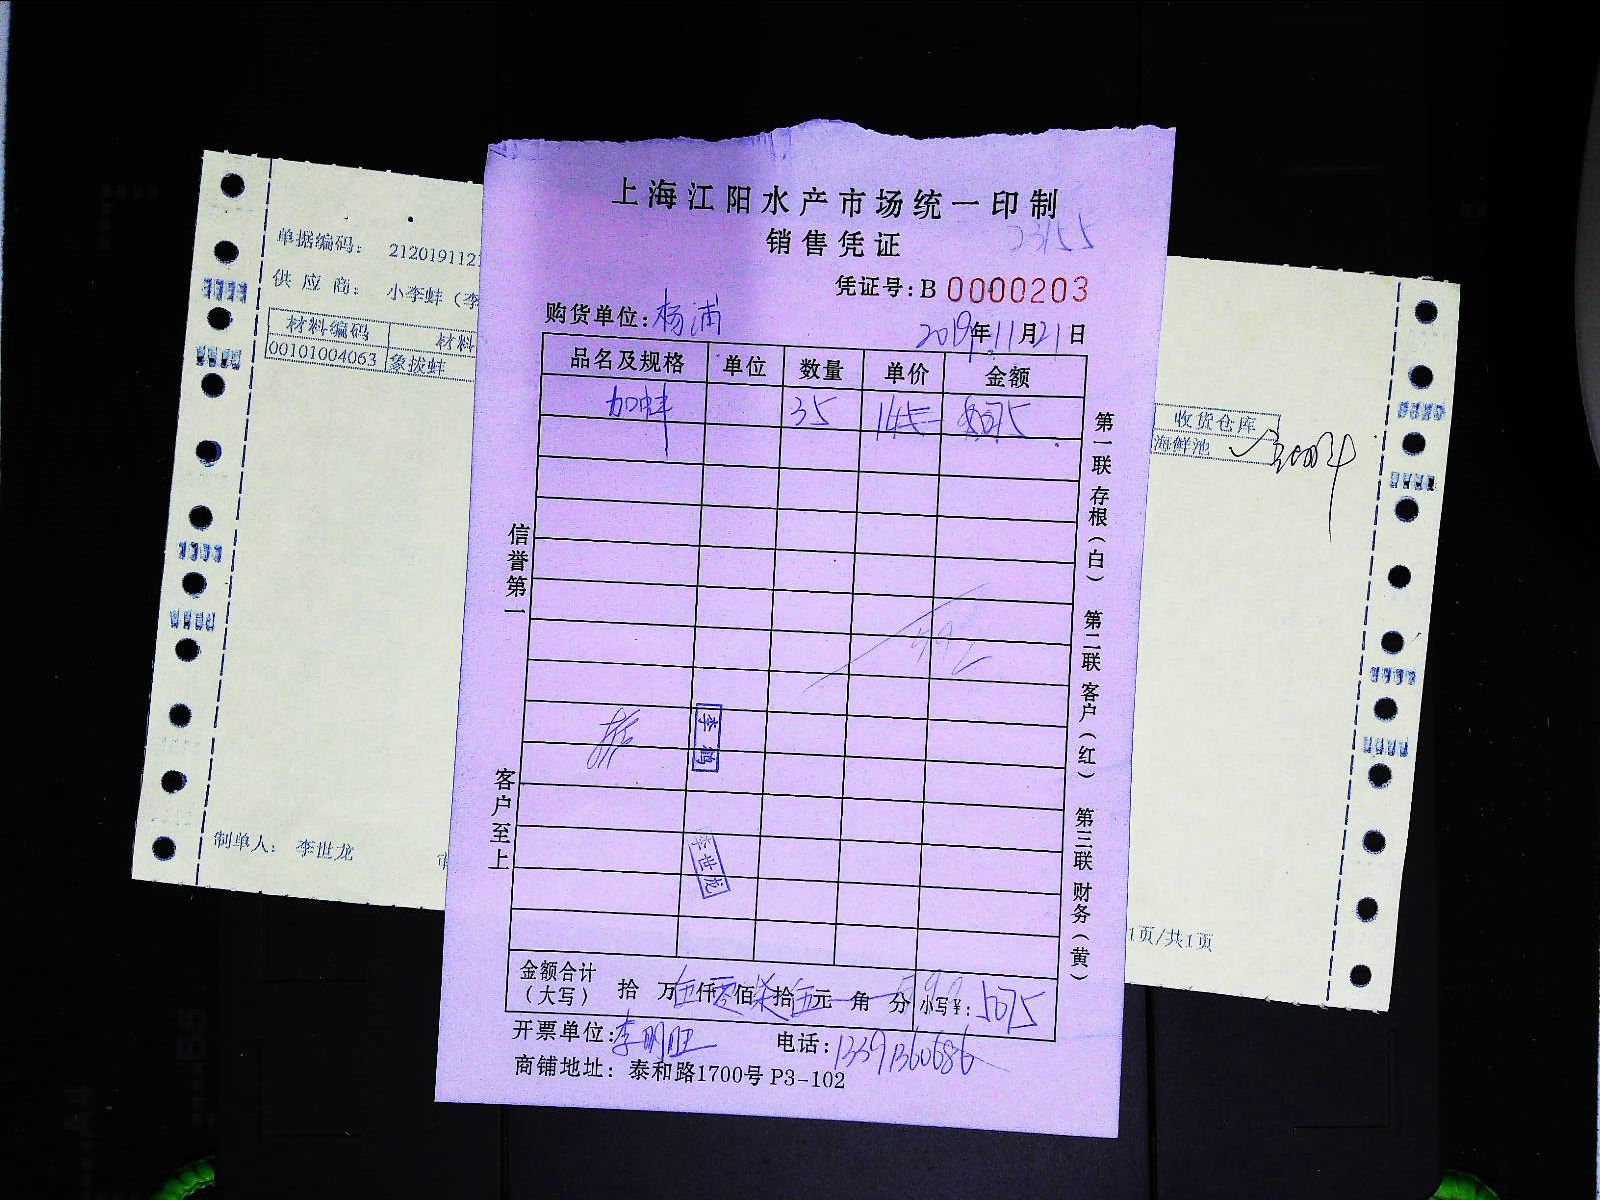 上海江阳水产市场统一印制
销售凭证
23155
凭证号：B 0000203
购货单位：杨浦
2019年11月21日
品名及规格 单位 数量 单价 金额
加蚌 35 145 5075
信誉第一
客户至上
第一联 存根（白） 第二联 客户（红） 第三联 财务（黄）
李鹏
李世龙
金额合计（大写） 拾 万伍仟零佰柒拾伍元 角 分 小写¥：5075
开票单位：李明旺 电话：13391360686
商铺地址：泰和路1700号 P3-102
单据编码： 212019112
供 应 商： 小李蚌（李
材料编码 材料
00101004063 象拔蚌
收货仓库
海鲜池
制单人： 李世龙
1页/共1页